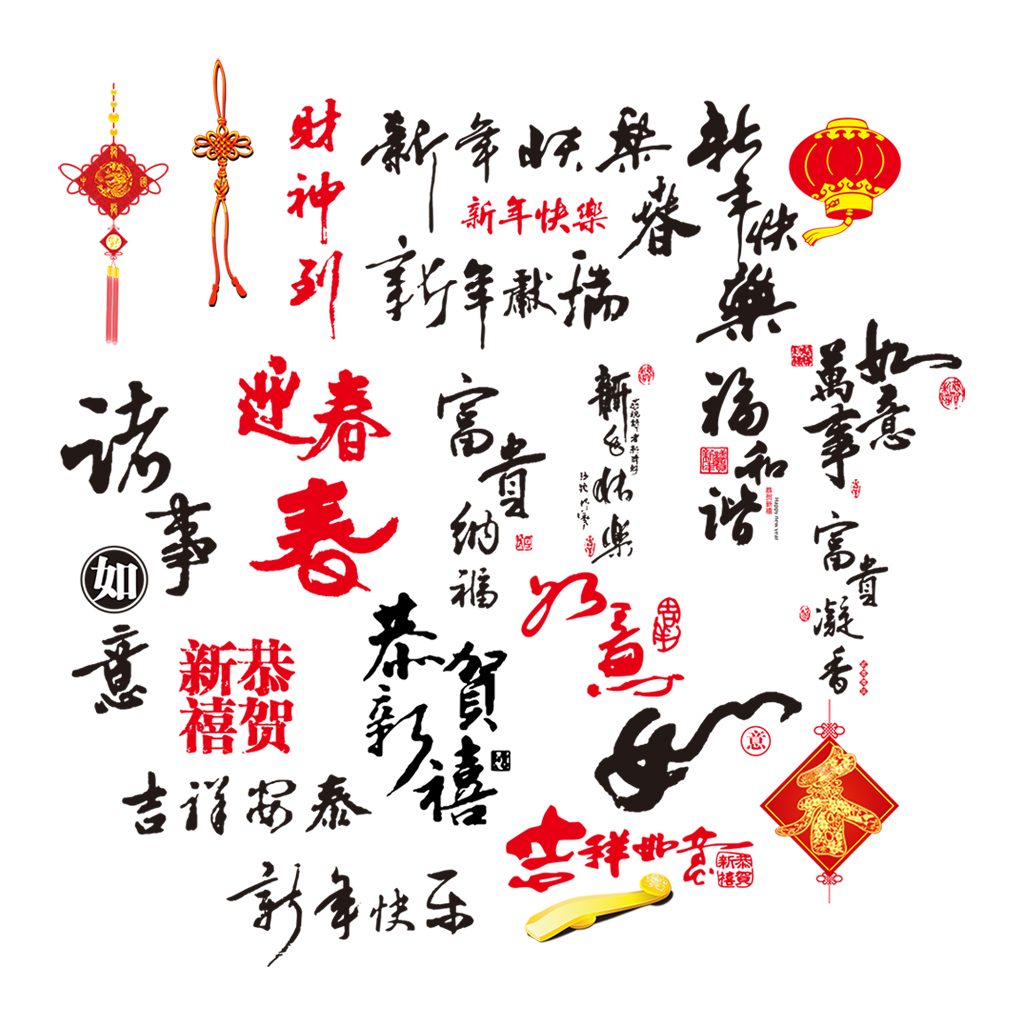 財神到
新年快樂
新年快樂
新年快樂
春
新年獻瑞
迎春
春
富貴納福
新年快樂
福和諧
恭贺新禧
Happy new year
萬事如意
諸事如意
富貴凝香
如意
恭贺新禧
恭賀新禧
意
春
吉祥安泰
吉祥如意
恭賀新禧
新年快乐